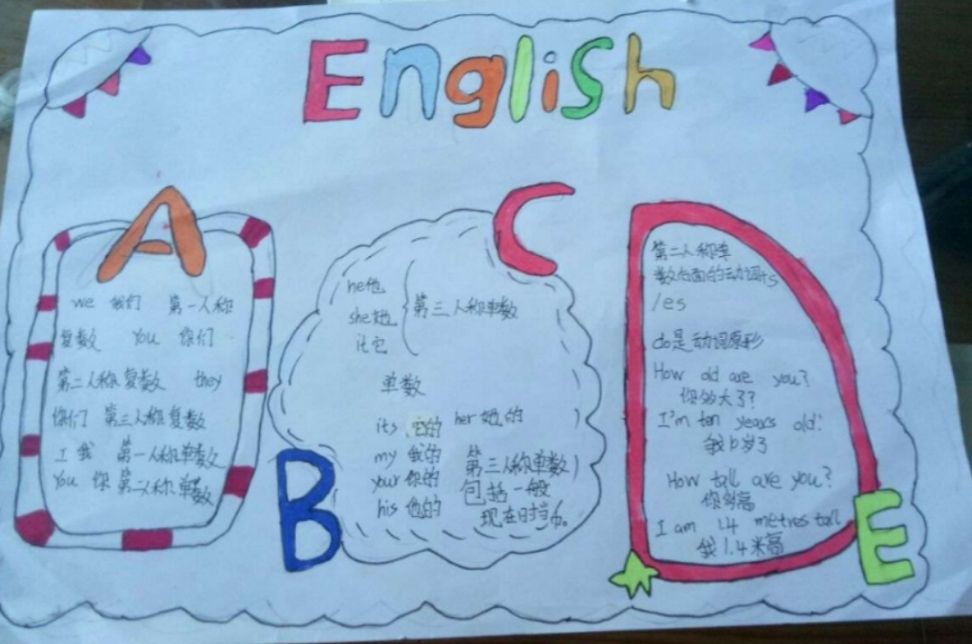 English
A
we 我们 第一人称
复数 You 你们
第二人称复数 they
你们 第三人称复数
I 我 第一人称单数
You 你 第二人称单数
B
C
he他
she她
it它
第三人称单数
单数
its 它的 her她的
my 我的
your你的
his他的
第三人称单数
包括一般
现在时
第二人称单
数后面的动词+s
/es
do是动词原形
How old are you?
你多大了?
I'm ten years old.
我10岁了
How tall are you?
你多高
I am 1.4 metres tall
我1.4米高
D
E